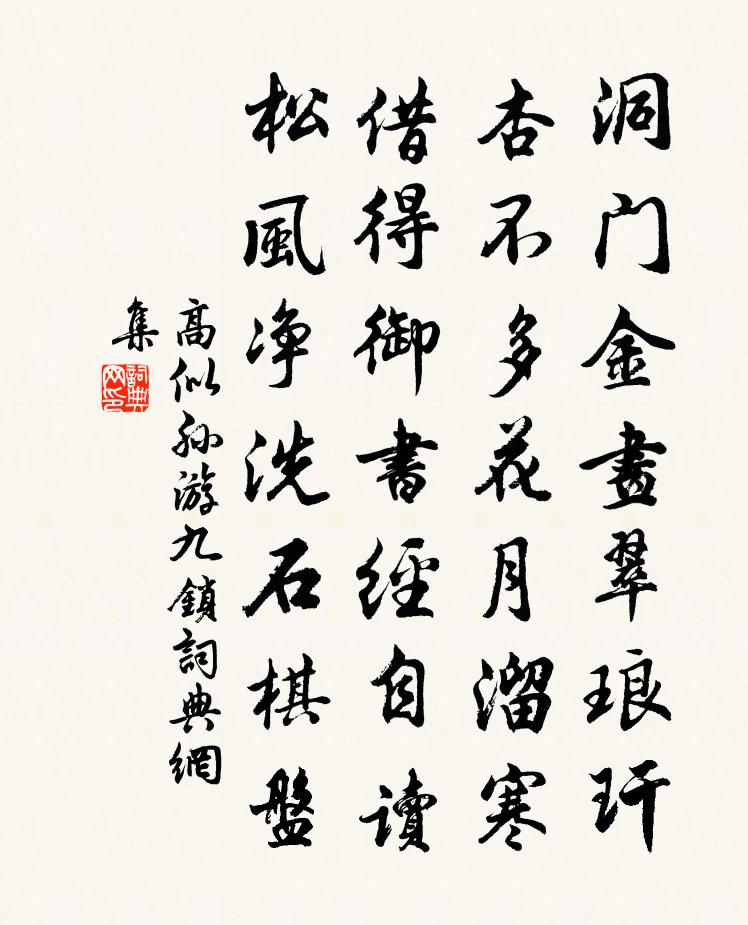 洞门金畫翠琅玕
杏不多花月溜寒
借得御書經自讀
松風净洗石棋盤
高似孙游九鎖詞典網
集
詞典
网印